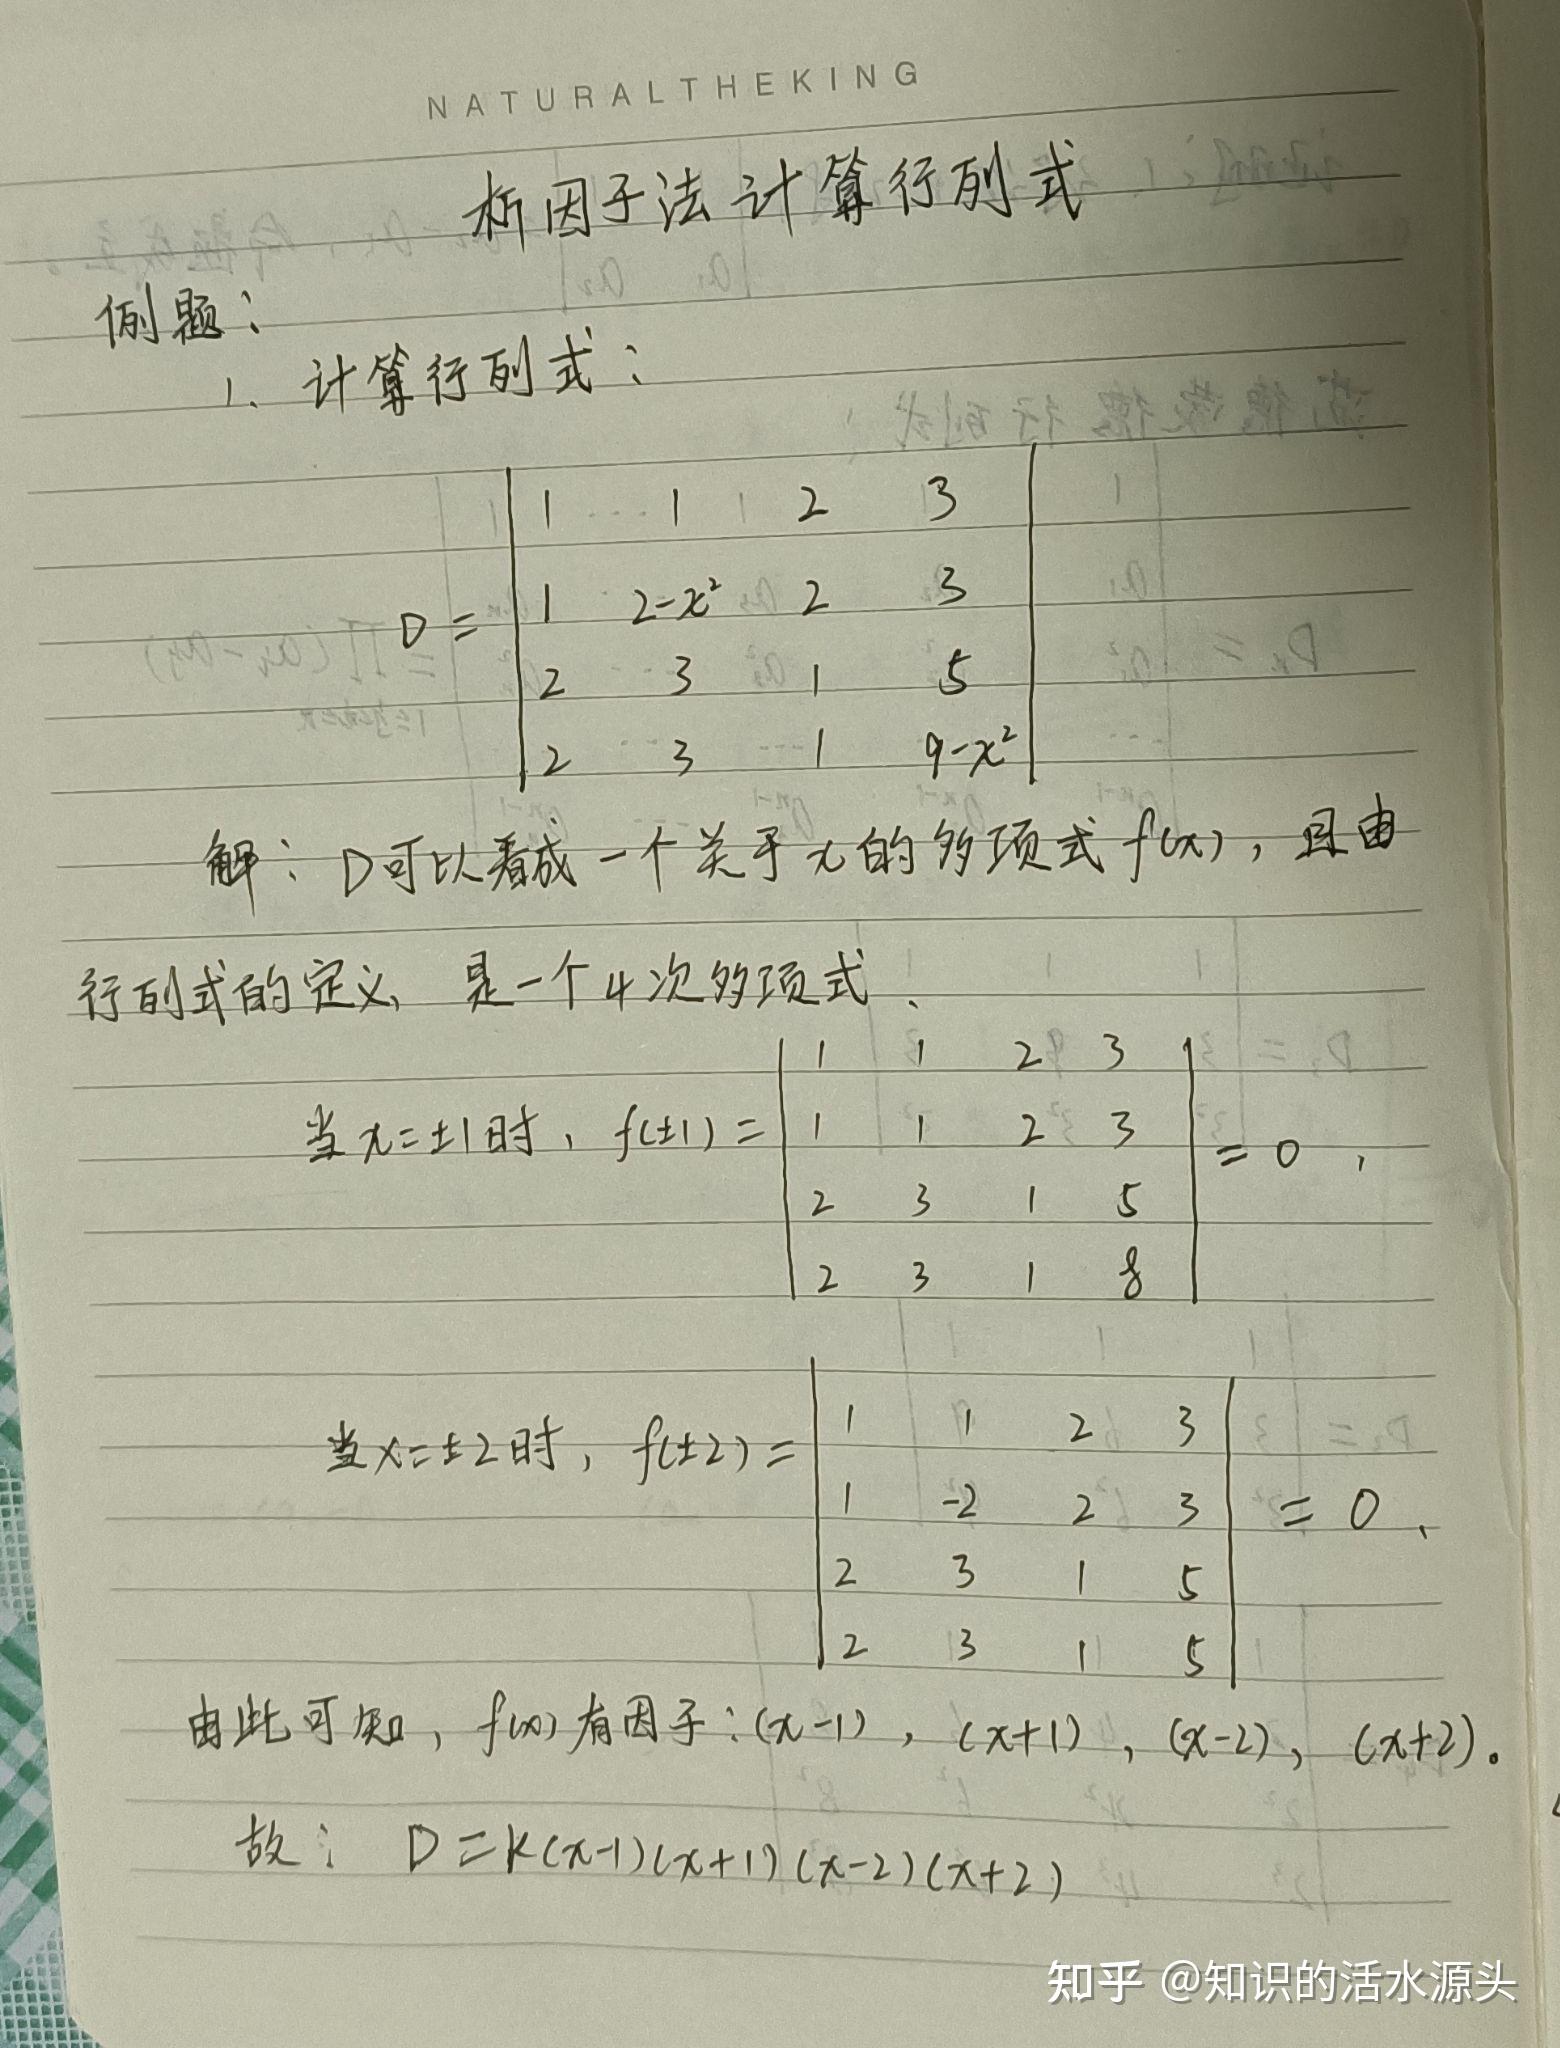 NATURALTHEKING
析因子法计算行列式
例题：
1、计算行列式：
1 1 2 3
D = 1 2-x² 2 3
2 3 1 5
2 3 1 9-x²
解：D可以看成一个关于x的多项式f(x)，且由
行列式的定义，是一个4次多项式、
1 1 2 3
当x=±1时，f(±1)= 1 1 2 3 = 0，
2 3 1 5
2 3 1 8
1 1 2 3
当x=±2时，f(±2)= 1 -2 2 3 = 0、
2 3 1 5
2 3 1 5
由此可知，f(x)有因子：(x-1)，(x+1)，(x-2)，(x+2)。
故：D=K(x-1)(x+1)(x-2)(x+2)
知乎 @知识的活水源头